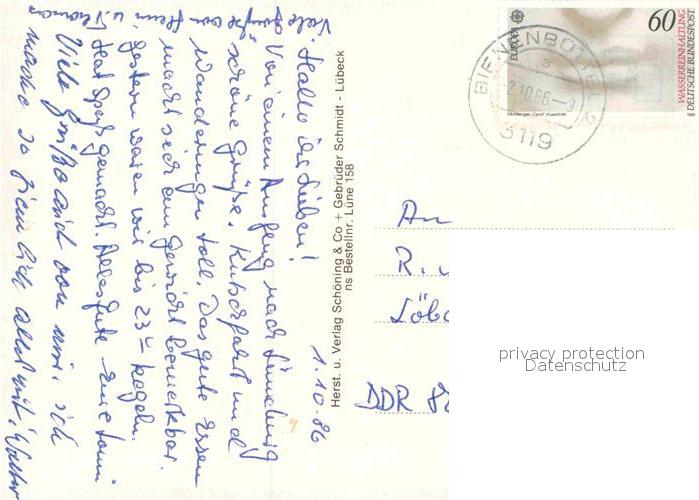 1.10.86
Hallo ihr Lieben!
Von einem Ausflug nach Lüneburg
schöne Grüße. Kutschfahrt und
Wanderungen toll. Das gute Essen
macht sich am Gewicht bemerkbar.
gestern waren wir bis 23 kegeln.
hat Spaß gemacht. Alles Gute Eure
Viele Grüße auch von mir, ich
mache so ziemlich alles mit. Walter
Viele
Herst. u. Verlag Schöning & Co + Gebrüder Schmidt - Lübeck
ns Bestellnr. Lüne 158
EUROPA
60
WASSERREINHALTUNG
DEUTSCHE BUNDESPOST
BIENENBÜTTEL
2.10.86
3119
An
R.
Löb
DDR 8
privacy protection
Datenschutz